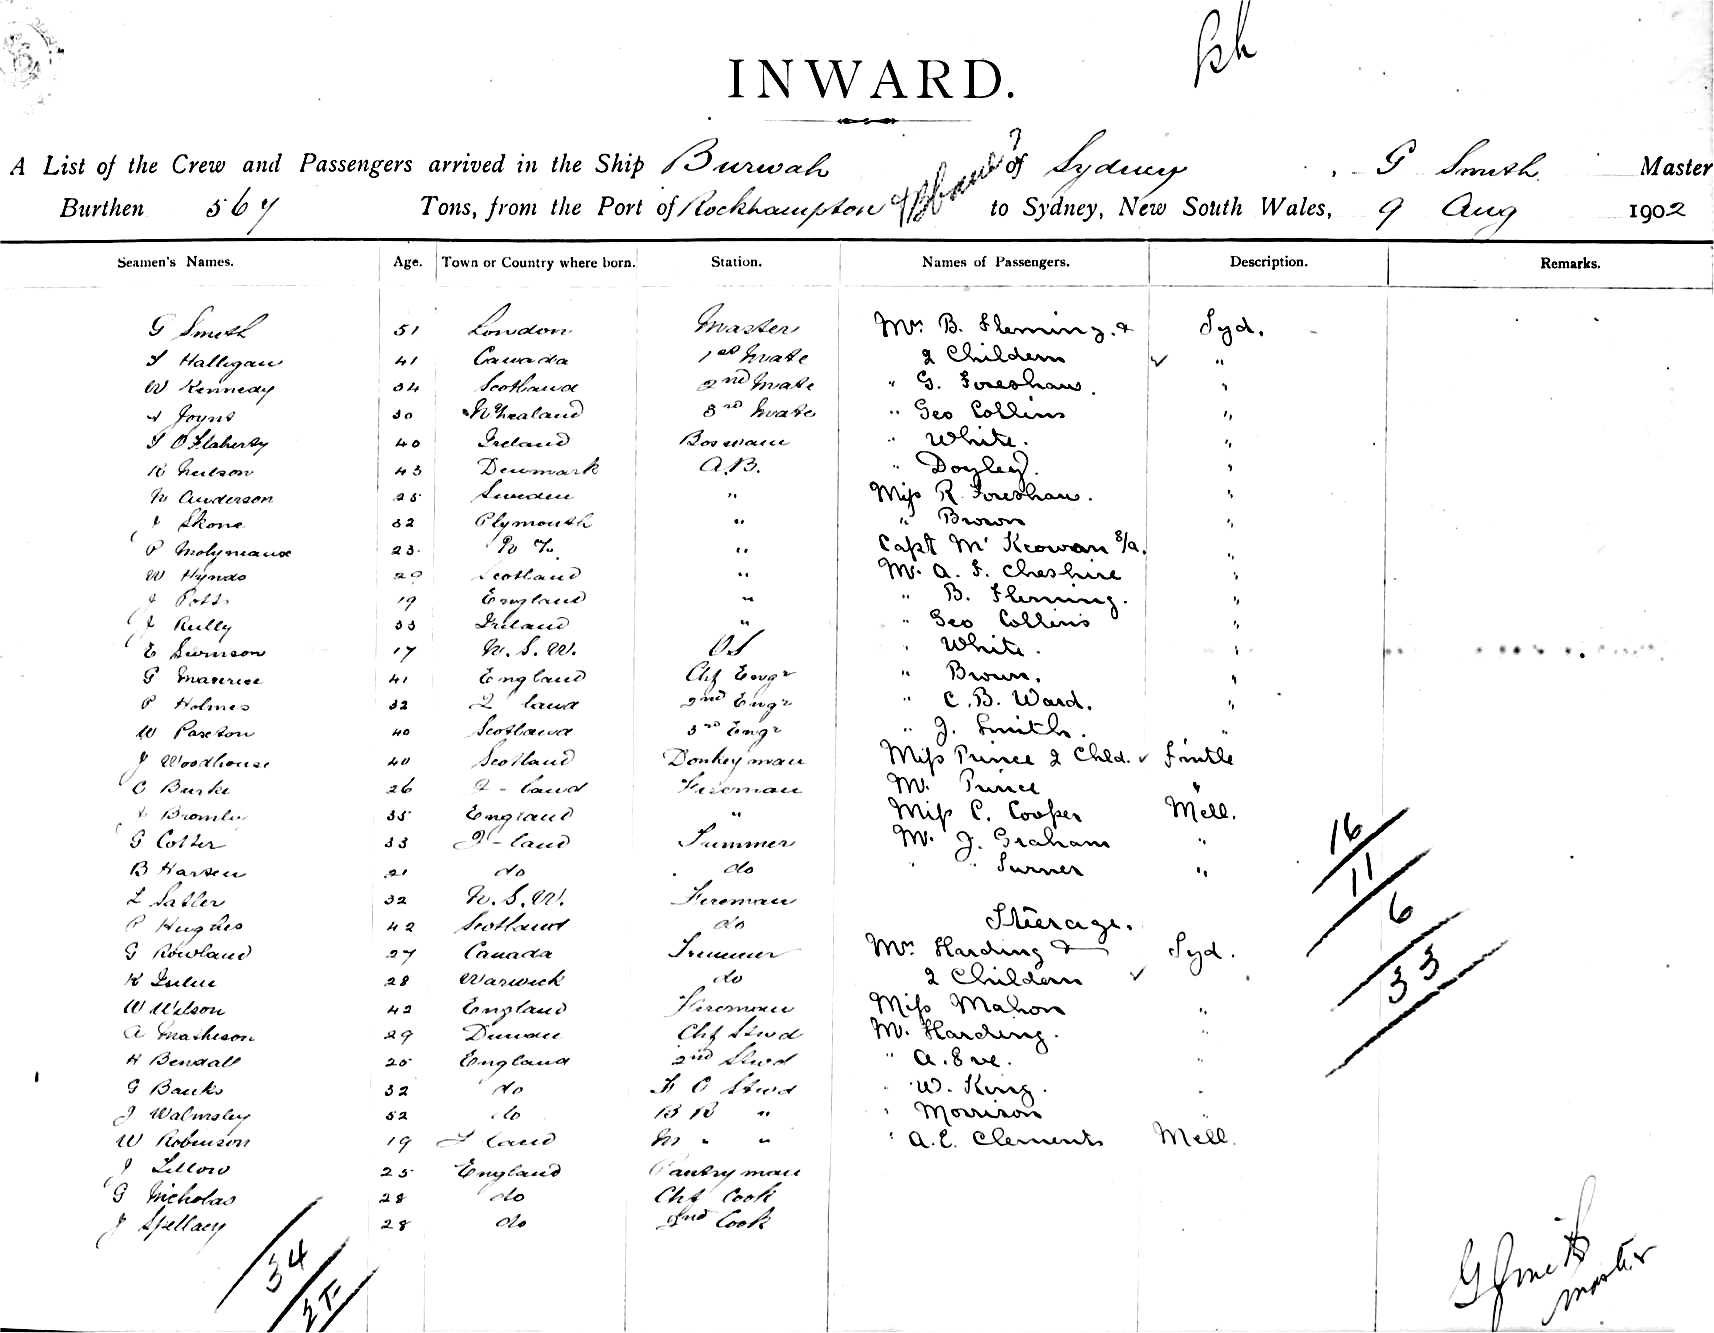 INWARD.
A List of the Crew and Passengers arrived in the Ship Burwah of Sydney, G Smith Master
Burthen 567 Tons, from the Port of Rockhampton & Bbane to Sydney, New South Wales, 9 Aug 1902
Seamen's Names. Age. Town or Country where born. Station. Names of Passengers. Description. Remarks.
G Smith 51 London Master Mrs B. Fleming. & Syd.
Halligan 41 Canada 1st Mate 2 Childern "
W Kennedy 34 Scotland 2nd Mate " G. Foreshaw. "
Joyns 30 3rd Mate " Geo Collins "
O'Flaherty 40 Ireland Bosmann " White. "
Neilson 43 Denmark A.B. " Doyley. "
Anderson 25 Sweden " Miss R. Foreshaw. "
Skone 32 Plymouth " " Brown "
P Molyneaux 23 " Capt Mc Keowan S/a. "
W Hynds 29 Scotland " Mr. A. F. Cheshire "
Potts 19 England " " B. Fleming. "
J Rully 33 Ireland " " Geo Collins "
E Swinson 17 N.S.W. OS " White. "
G Maurice 41 England Chf Engr " Brown. "
P Holmes 32 Q land 2nd Engr " C. B. Ward. "
W Paxton 40 Scotland 3rd Engr " J. Smith. "
J Woodhouse 40 Scotland Donkeyman Miss Prince 2 Chld.
C Burke 26 Q-land Fireman Mr. Prince "
Bromley 35 England " Miss C. Cooper Mell.
G Cotter 33 Q-land Trimmer Mr. J. Graham "
B Hansen 21 do do " " Turner "
L Satler 32 N.S.W. Fireman
P Hughes 42 Scotland do Steerage.
G Rowland 27 Canada Trimmer Mrs Harding & Syd.
K 28 Warwick do 2 Childern "
W Wilson 42 England Fireman Miss Mahon "
A Matheson 29 Chf Stwd Mr. Harding. "
H Bendall 25 England 2nd Stwd " A. Eve. "
G Banks 32 do F C Stwd " W. King. "
J Walmsley 52 do B R " " Morrison "
W Robinson 19 land M " " " A. E. Clements Mell.
J Lillow 25 England Pantryman
G Nicholas 28 do Chf Cook
J Spellacy 28 do 2nd Cook
16
11
6
33
34
G Smith
master